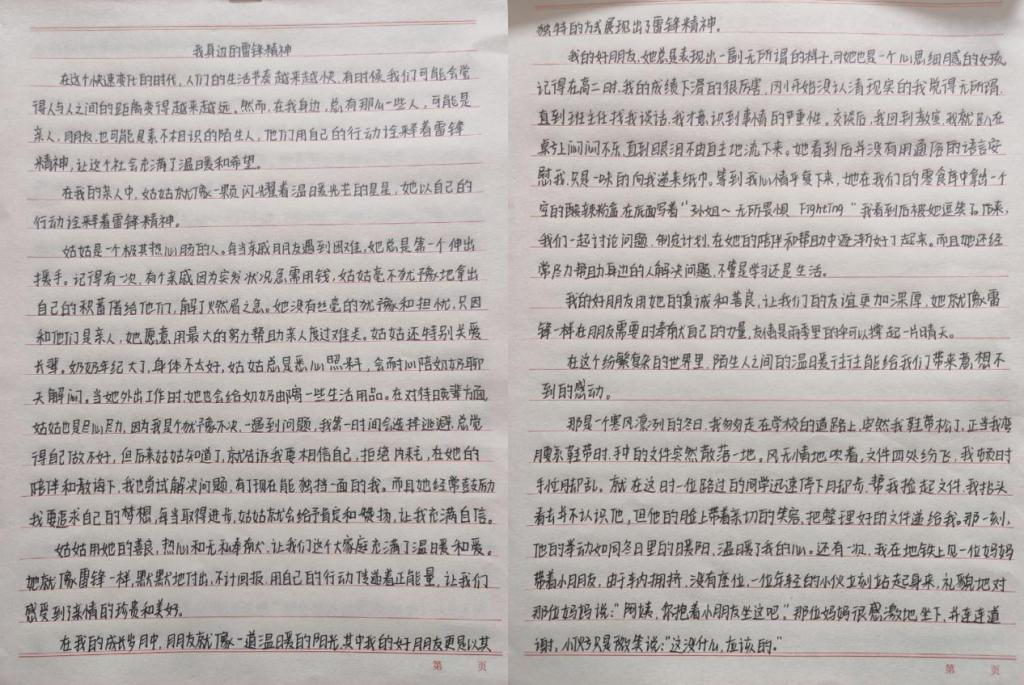 我身边的雷锋精神
在这个快速变化的时代，人们的生活节奏越来越快，有时候我们可能会觉
得人与人之间的距离变得越来越远。然而，在我身边，总有那么一些人，可能是
亲人，朋友，也可能是素不相识的陌生人，他们用自己的行动诠释着雷锋
精神，让这个社会充满了温暖和希望。
在我的亲人中，姑姑就像一颗闪耀着温暖光芒的星星，她以自己的
行动诠释着雷锋精神。
姑姑是个极其热心肠的人。每当亲戚朋友遇到困难，她总是第一个伸出
援手。记得有一次，有个亲戚因为突发状况急需用钱，姑姑毫不犹豫地拿出
自己的积蓄借给他们，解了燃眉之急。她没有丝毫的犹豫和担忧，只因
和他们是亲人，她愿意用最大的努力帮助亲人度过难关。姑姑还特别关爱
长辈。奶奶年纪大了，身体不太好，姑姑总是悉心照料，会耐心陪奶奶聊
天解闷。当她外出工作时，她也会给奶奶邮寄一些生活用品。在对待晚辈方面，
姑姑也是尽心尽力，因为我是个犹豫不决，一遇到问题，我第一时间会选择逃避，总觉
得自己做不好，但后来姑姑知道了，就告诉我要相信自己，拒绝内耗，在她的
陪伴和教诲下，我也尝试解决问题，有了现在能独挡一面的我。而且她经常鼓励
我要追求自己的梦想，每当取得进步，姑姑就会给予肯定和赞扬，让我充满自信。
姑姑用她的善良，热心和无私奉献，让我们这个大家庭充满了温暖和爱。
她就像雷锋一样，默默地付出，不计回报，用自己的行动传递着正能量，让我们
感受到亲情的珍贵和美好。
在我的成长岁月中，朋友就像一道温暖的阳光，其中我的好朋友更是以其
第 页
独特的方式展现出了雷锋精神。
我的好朋友，她总是表现出一副无所谓的样子，可她也是一个心思细腻的女孩。
记得在高二时，我的成绩下滑的很厉害，刚开始没认清现实的我觉得无所谓，
直到班主任找我谈话，我才意识到事情的严重性。交谈后，我回到教室，我就趴在
桌子上闷闷不乐，直到眼泪不由自主地流下来。她看到后并没有用通俗的语言安
慰我，只是一味的向我递来纸巾。等到我心情平复下来，她在我们的零食库中拿出一个
空的酸辣粉盒，在底面写着"孙姐～无所畏惧 Fighting"我看到后被她逗笑了。后来，
我们一起讨论问题，制定计划，在她的陪伴和帮助中逐渐好了起来。而且她还经
常尽力帮助身边的人解决问题，不管是学习还是生活。
我的好朋友用她的真诚和善良，让我们的友谊更加深厚，她就像雷
锋一样在朋友需要时奉献自己的力量，友情是雨季里的伞可以撑起一片晴天。
在这个纷繁复杂的世界里，陌生人之间的温暖往往能给我们带来意想不
到的感动。
那是一个寒风凛冽的冬日，我匆匆走在学校的道路上，突然我鞋带松了，正当我弯
腰系鞋带时，手中的文件突然散落一地。风无情地吹着，文件四处纷飞，我顿时
手忙脚乱。就在这时一位路过的同学迅速停下脚步，帮我捡起文件，我抬头
看去并不认识他，但他的脸上带着亲切的笑容，把整理好的文件递给我。那一刻，
他的举动如同冬日里的暖阳，温暖了我的心。还有一次，我在地铁上见一位妈妈
带着小朋友，由于车内拥挤，没有座位，一位年轻的小伙立刻站起身来，礼貌地对
那位妈妈说："阿姨，你抱着小朋友坐这吧。"那位妈妈很感激地坐下，并连连道
谢，小伙只是微笑说："这没什么，应该的。"
第 页